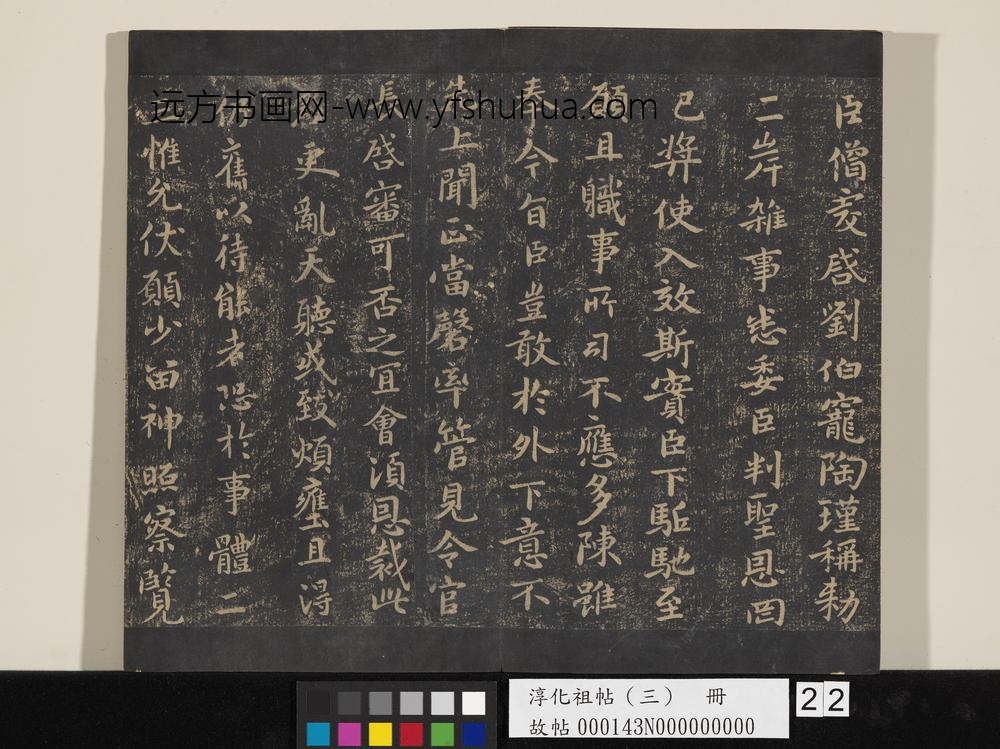 臣僧虔啓劉伯寵陶瑾稱勑
二岸雜事悉委臣判聖恩罔
已獎使入效斯實臣下駈馳至
願且職事所司不應多陳雖
奉今旨臣豈敢於外下意不
先上聞正當罄率管見令官
長啓審可否之宜會須恩裁此
更亂天聽或致煩壅且得
舊以待能者恐於事體二
惟允伏願少留神照察覧
远方书画网-www.yfshuhua.com
淳化祖帖（三） 冊
故帖 000143N000000000
22